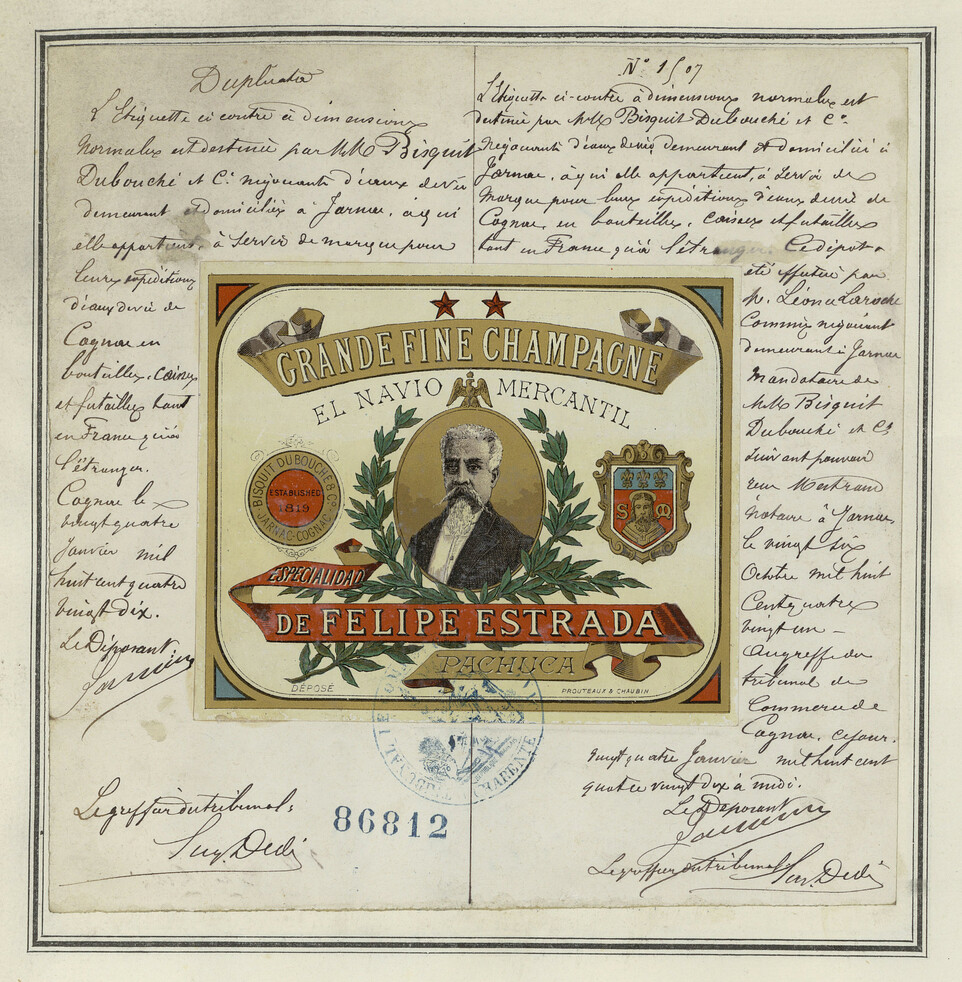 Duplicata
L'Etiquette ci contre à dimensions
normales est destinée par M.M. Bisquit
Dubouché et Cie négociants d'eaux de vie
demeurant et domiciliés à Jarnac, à qui
elle appartient, à servir de marque pour
leurs expéditions
d'eaux de vie de
Cognac en
bouteilles, caisses
et futailles tant
en France qu'à
l'étranger.
Cognac le
vingt quatre
Janvier mil
huit cent quatre
vingt dix.
Le Déposant
Le greffier du tribunal:
No 1507
L'Etiquette ci-contre à dimensions normales est
destinée par M.M. Bisquit Dubouché et Ce
négociants d'eaux de vie demeurant et domiciliés à
Jarnac, à qui elle appartient, à servir de
marque pour leurs expéditions d'eaux de vie de
Cognac, en bouteilles, caisses et futailles
tant en France qu'à l'étranger. Ce dépôt a
été effectué par
M. Léonce Laroche
Commis négociant
demeurant à Jarnac
mandataire de
M.M. Bisquit
Dubouché et Ce
suivant pouvoir
notaire à Jarnac
le vingt six
Octobre mil huit
cent quatre
vingt un -
au greffe du
tribunal de
Commerce de
Cognac, ce jour.
vingt quatre Janvier mil huit cent
quatre vingt dix à midi.
Le Déposant
Le greffier du tribunal
GRANDE FINE CHAMPAGNE
EL NAVIO MERCANTIL
BISQUIT DUBOUCHÉ & Co
ESTABLISHED
1819
JARNAC-COGNAC
S M
ESPECIALIDAD
DE FELIPE ESTRADA
PACHUCA
DÉPOSÉ
PROUTEAUX & CHAUBIN
CHARENTE
86812